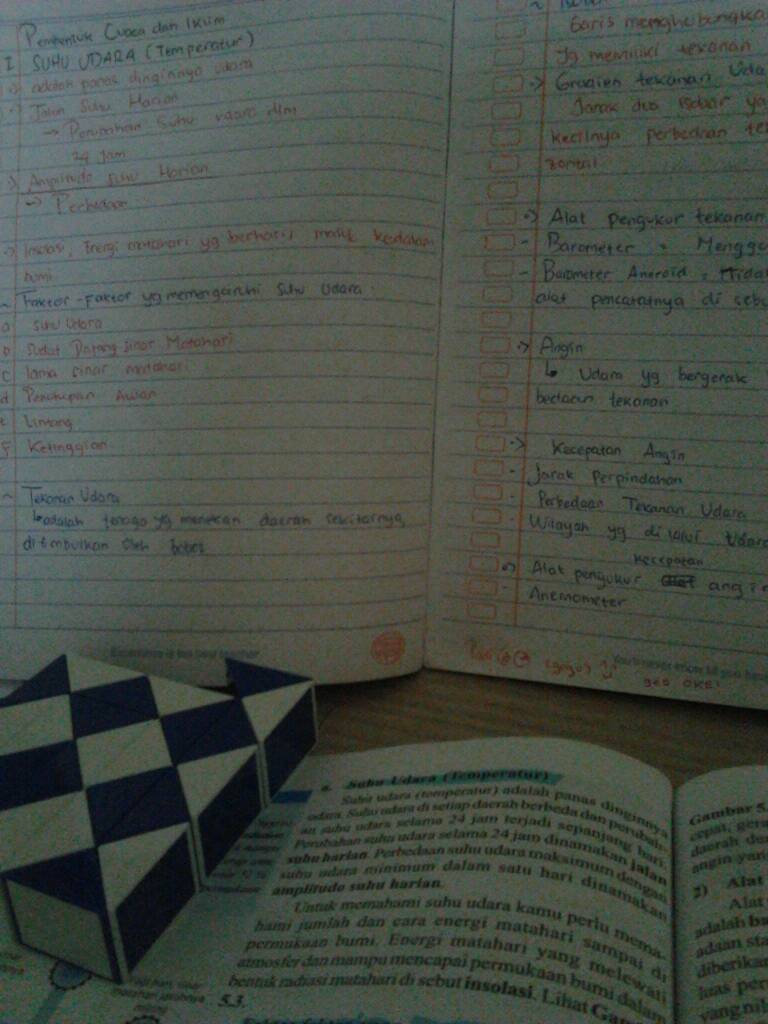 Pembentuk Cuaca dan Iklim
I SUHU UDARA (Temperatur)
adalah panas dinginnya udara
Jalan Suhu Harian
→ Perubahan suhu udara dlm
24 jam
Amplitudo suhu Harian
→ Perbedaan
Insolasi, Energi matahari yg berhasil masuk kedalam
bumi
Faktor-Faktor yg memengaruhi Suhu Udara.
a Suhu Udara
b Sudut Datang Sinar Matahari
c lama sinar matahari
d Penutupan Awan
e Lintang
f Ketinggian
Tekanan Udara
↳ adalah tenaga yg menekan daerah sekitarnya,
ditimbulkan oleh
Experience is the best teacher
Garis menghubungka
Yg memiliki tekanan
Gradien tekanan Uda
Jarak dua Isobar ya
kecilnya perbedaan te
zontal
Alat pengukur tekanan
- Barometer = Mengg
- Barometer Aneroid = Tida
alat pencatatnya di seb
Angin
↳ Udara yg bergerak
bedaan tekanan
Kecepatan Angin
- Jarak Perpindahan
- Perbedaan Tekanan Udara
- Wilayah yg di lalui Udara
kecepatan
Alat pengukur angin
- Anemometer
geo OKE!
a. Suhu Udara (Temperatur)
Suhu udara (temperatur) adalah panas dinginnya
udara. Suhu udara di setiap daerah berbeda dan perubah-
an suhu udara selama 24 jam terjadi sepanjang hari.
Perubahan suhu udara selama 24 jam dinamakan jalan
suhu harian. Perbedaan suhu udara maksimum dengan
suhu udara minimum dalam satu hari dinamakan
amplitudo suhu harian.
Untuk memahami suhu udara kamu perlu mema-
hami jumlah dan cara energi matahari sampai di
permukaan bumi. Energi matahari yang melewati
atmosfer dan mampu mencapai permukaan bumi dalam
bentuk radiasi matahari di sebut insolasi. Lihat Gam
5.3.
Gambar 5.
cepat, gera
daerah de
angin yan
2) Alat
Alat
adalah ba
adaan sta
diberikan
luas per
yang nil